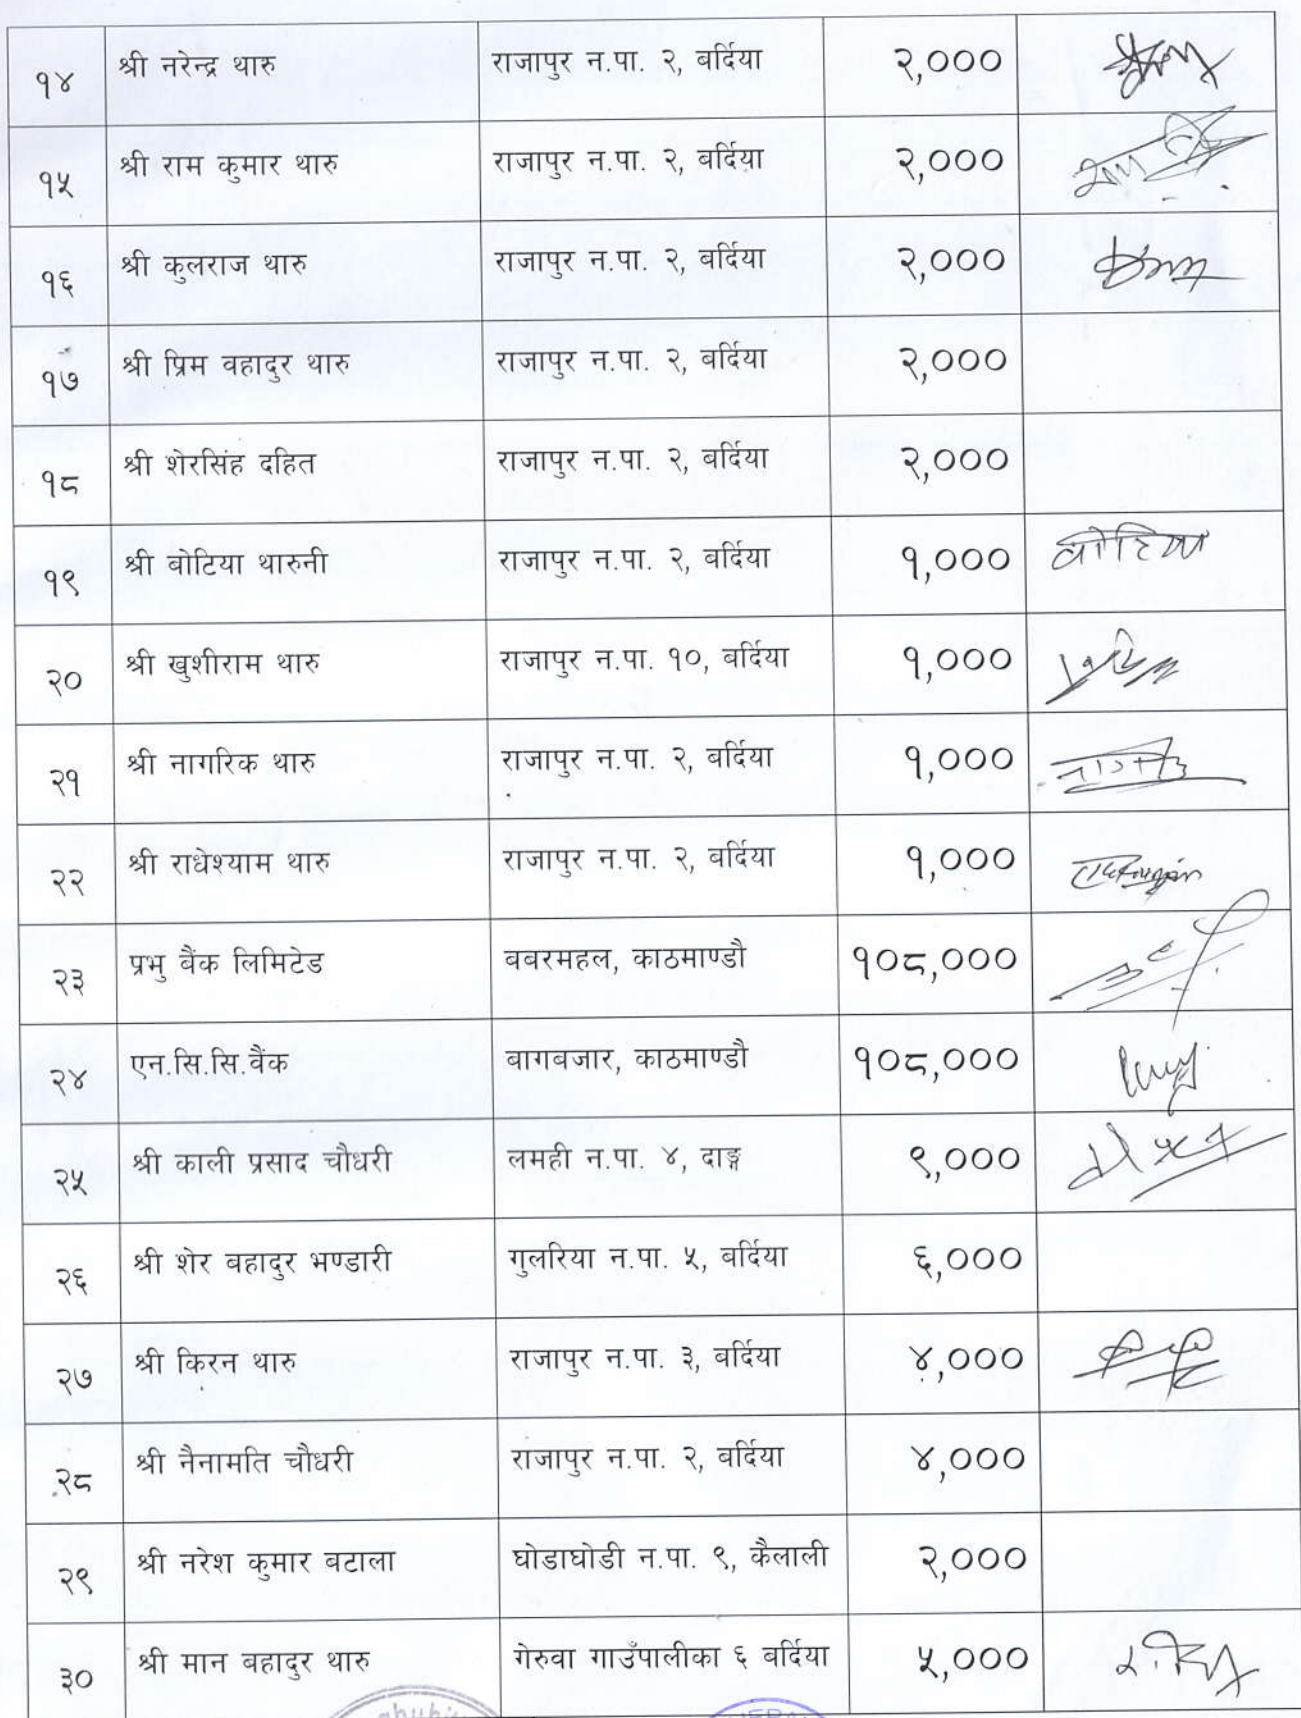 १४ श्री नरेन्द्र थारु राजापुर न.पा. २, बर्दिया २,०००
१५ श्री राम कुमार थारु राजापुर न.पा. २, बर्दिया २,०००
१६ श्री कुलराज थारु राजापुर न.पा. २, बर्दिया २,०००
१७ श्री प्रिम वहादुर थारु राजापुर न.पा. २, बर्दिया २,०००
१८ श्री शेरसिंह दहित राजापुर न.पा. २, बर्दिया २,०००
१९ श्री बोटिया थारुनी राजापुर न.पा. २, बर्दिया १,०००
२० श्री खुशीराम थारु राजापुर न.पा. १०, बर्दिया १,०००
२१ श्री नागरिक थारु राजापुर न.पा. २, बर्दिया १,०००
२२ श्री राधेश्याम थारु राजापुर न.पा. २, बर्दिया १,०००
२३ प्रभु बैंक लिमिटेड बबरमहल, काठमाण्डौ १०८,०००
२४ एन.सि.सि.वैंक बागबजार, काठमाण्डौ १०८,०००
२५ श्री काली प्रसाद चौधरी लमही न.पा. ४, दाङ्ग ९,०००
२६ श्री शेर बहादुर भण्डारी गुलरिया न.पा. ५, बर्दिया ६,०००
२७ श्री किरन थारु राजापुर न.पा. ३, बर्दिया ४,०००
२८ श्री नैनामति चौधरी राजापुर न.पा. २, बर्दिया ४,०००
२९ श्री नरेश कुमार बटाला घोडाघोडी न.पा. ९, कैलाली २,०००
३० श्री मान बहादुर थारु गेरुवा गाउँपालीका ६ बर्दिया ५,०००